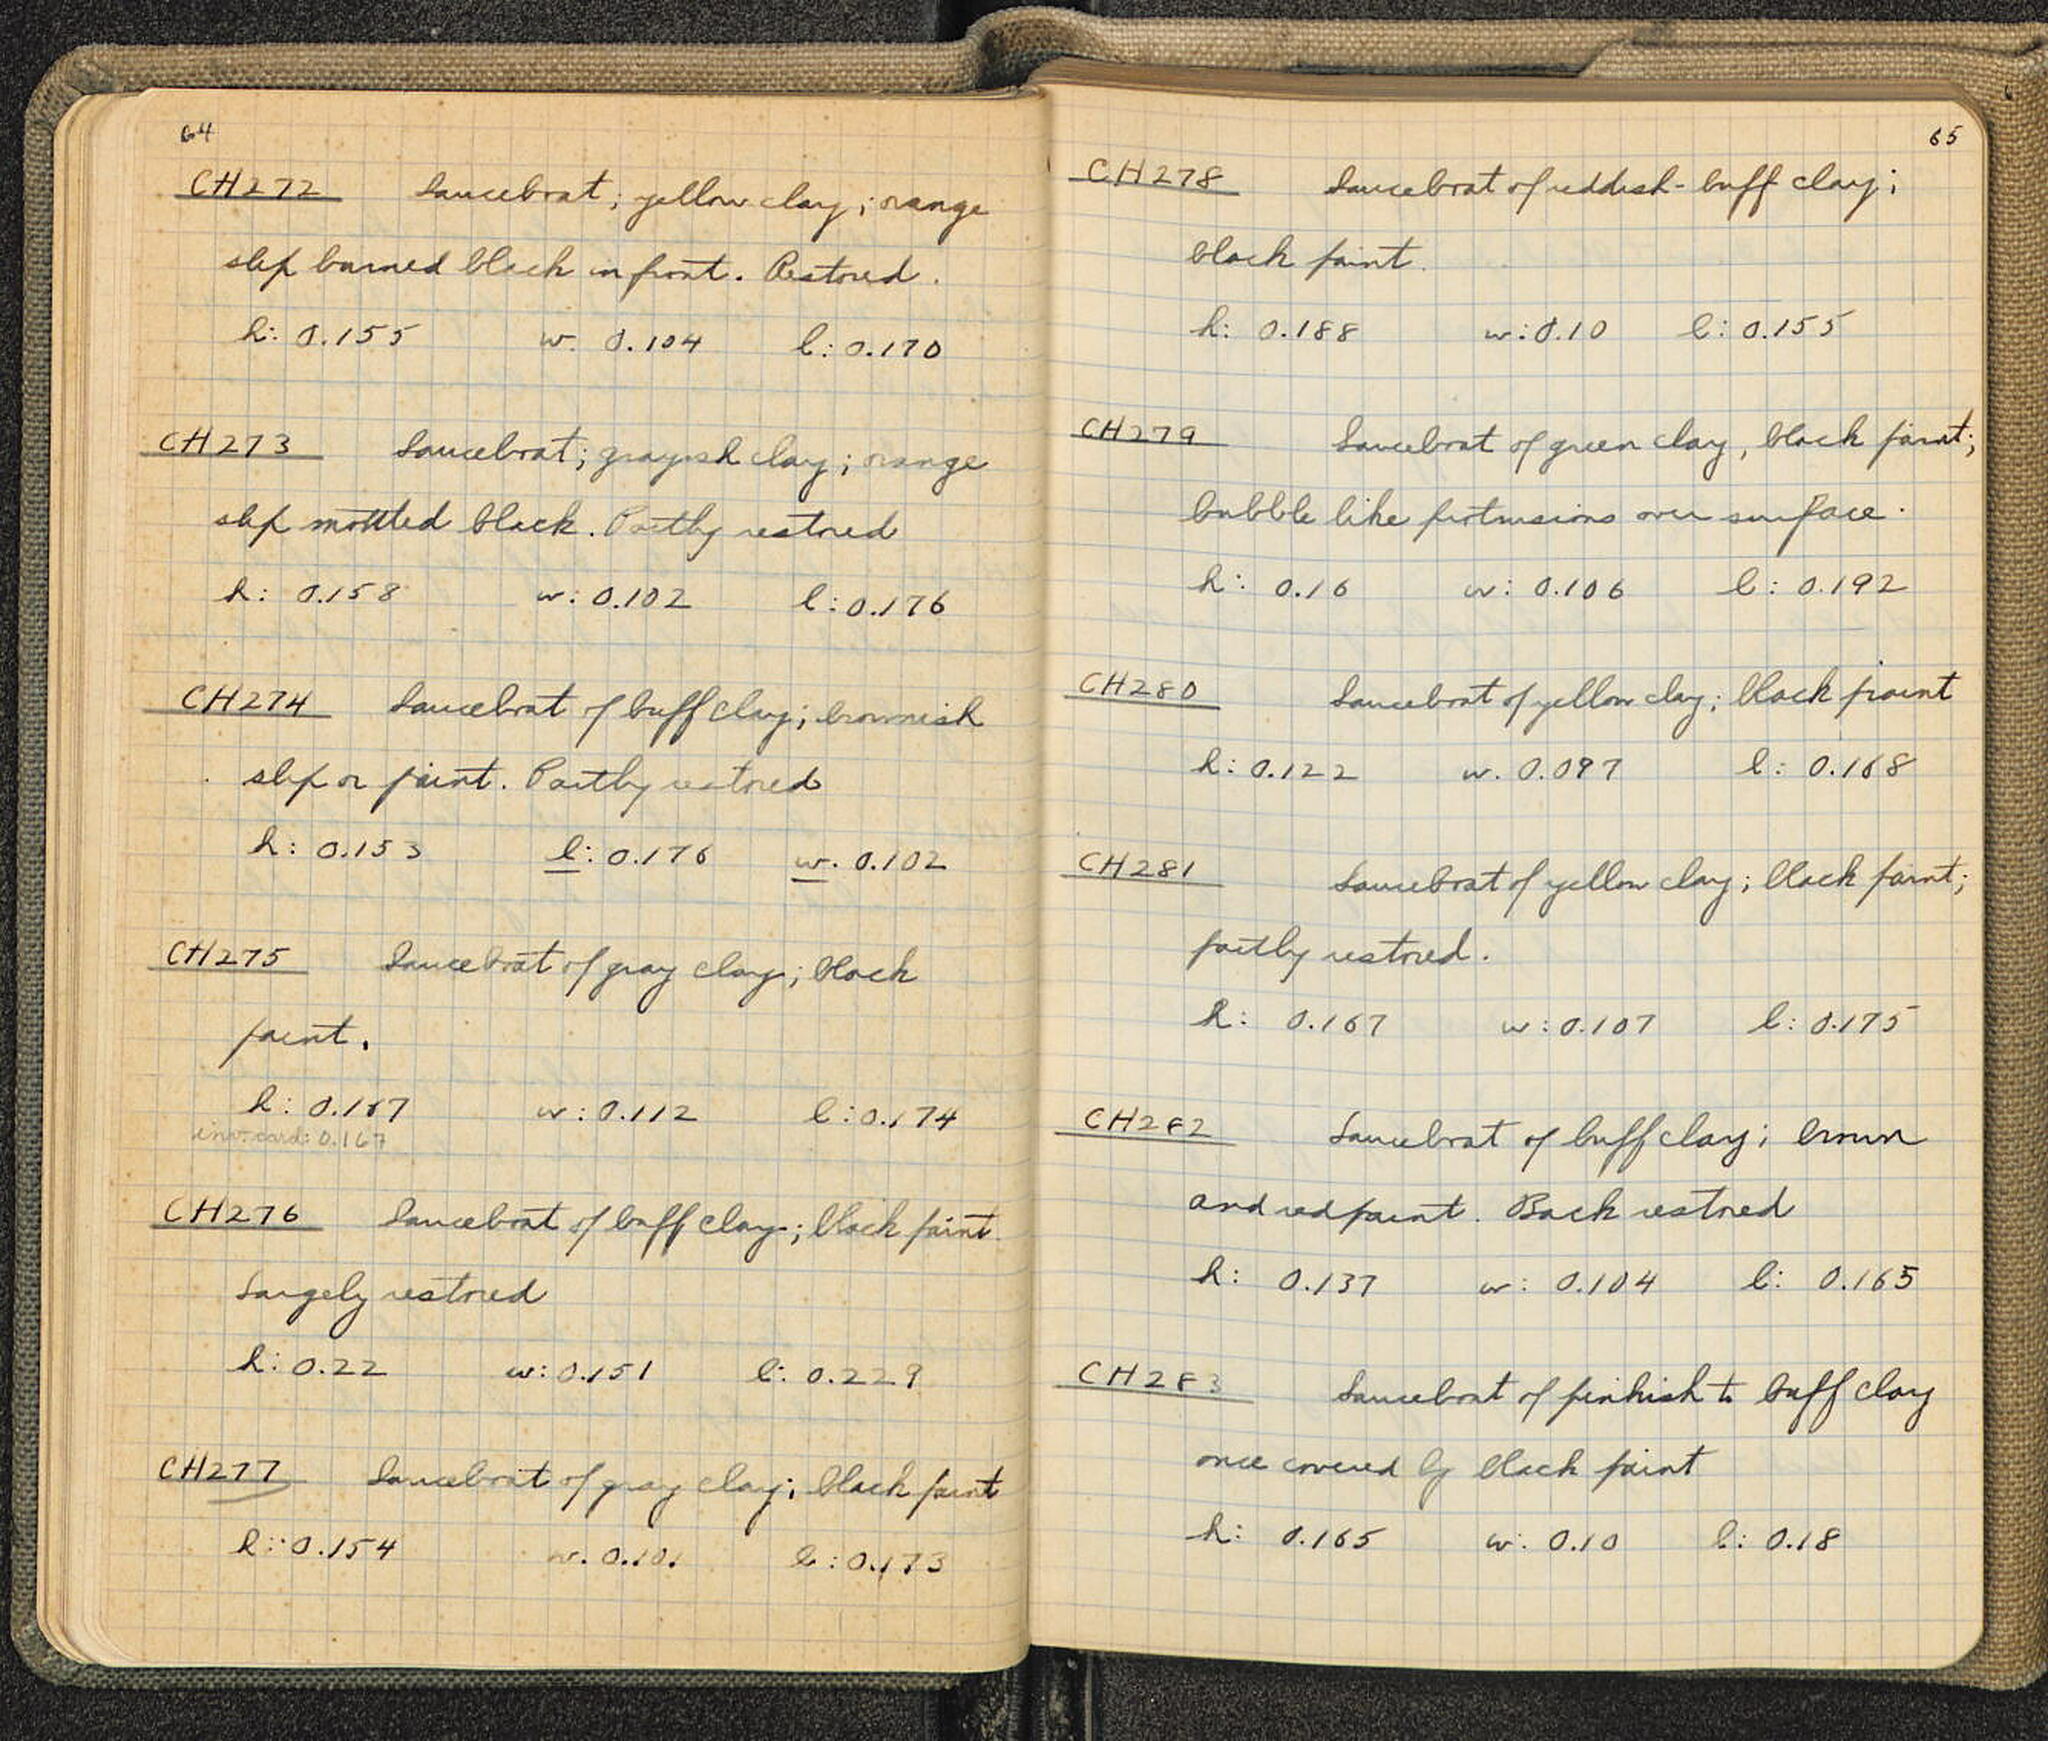 64
CH272 Sauceboat; yellow clay; orange
slip burned black in front. Restored.
h: 0.155 w. 0.104 l: 0.170
CH273 Sauceboat; grayish clay; orange
slip mottled black. Partly restored
h: 0.158 w: 0.102 l: 0.176
CH274 Sauceboat of buff clay; brownish
slip or paint. Partly restored
h: 0.153 l: 0.176 w. 0.102
CH275 Sauceboat of gray clay; black
paint.
h: 0.167 w: 0.112 l: 0.174
inv. card: 0.167
CH276 Sauceboat of buff clay; black paint.
Largely restored
h: 0.22 w: 0.151 l: 0.229
CH277 Sauceboat of gray clay; black paint
h: 0.154 w. 0.101 l: 0.173
65
CH278 Sauceboat of reddish-buff clay;
black paint.
h: 0.188 w: 0.10 l: 0.155
CH279 Sauceboat of green clay, black paint;
bubble like protrusions over surface.
h: 0.16 w: 0.106 l: 0.192
CH280 Sauceboat of yellow clay; black paint
h: 0.122 w. 0.097 l: 0.168
CH281 Sauceboat of yellow clay; black paint;
partly restored.
h: 0.167 w: 0.107 l: 0.175
CH282 Sauceboat of buff clay; brown
and red paint. Back restored
h: 0.137 w: 0.104 l: 0.165
CH283 Sauceboat of pinkish to buff clay
once covered by black paint
h: 0.165 w: 0.10 l: 0.18